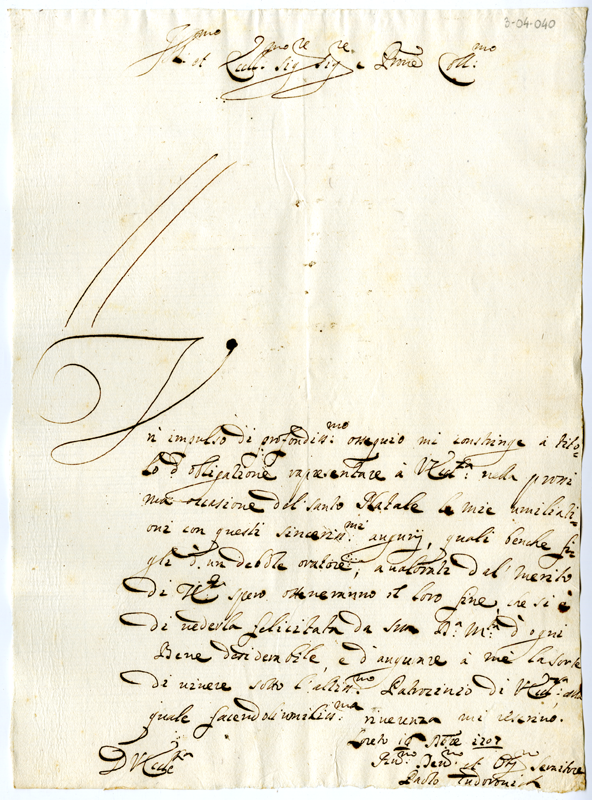 3-04-040
Ill:mo et Ecc:mo Sig:re Sig:re e Prone Coll:mo
Vn impulso di profondiss:mo ossequio mi constringe à tito=
lo d'obligatione rapresentare à V Ecc:za nella prossi
ma occasione del santo Natale le mie umiliati=
oni con questi sinceriss:mi augurij, quali benche fi
gli d'un debole oratore, avalorati dal merito
di V E spero otteneranno il loro fine, che si è
di vederla felicitata da sua D: M:tà d'ogni
Bene desiderabile, e d'augurare à me la sorte
di vivere sotto l'altiss:mo Patrocinio di V Ecc:za alla
quale facendo umiliss:ma riverenza mi rescrivo.
Loreto 18 Nbre 1707
D V Ecc:za
Hu:mo Dev:mo et Obl:mo Servitore
Paolo